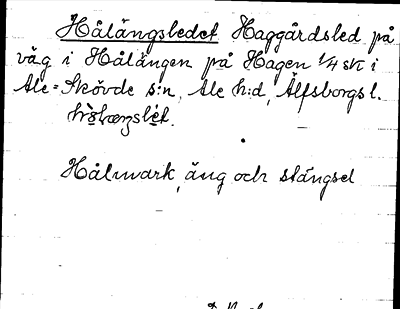 Hålängsledet Haggårdsled på
väg i Hålängen på Hagen 1/4 sk i
Ale-Skövde s:n, Ale h:d, Älfsborgs l.
Hålmark, äng och stängsel